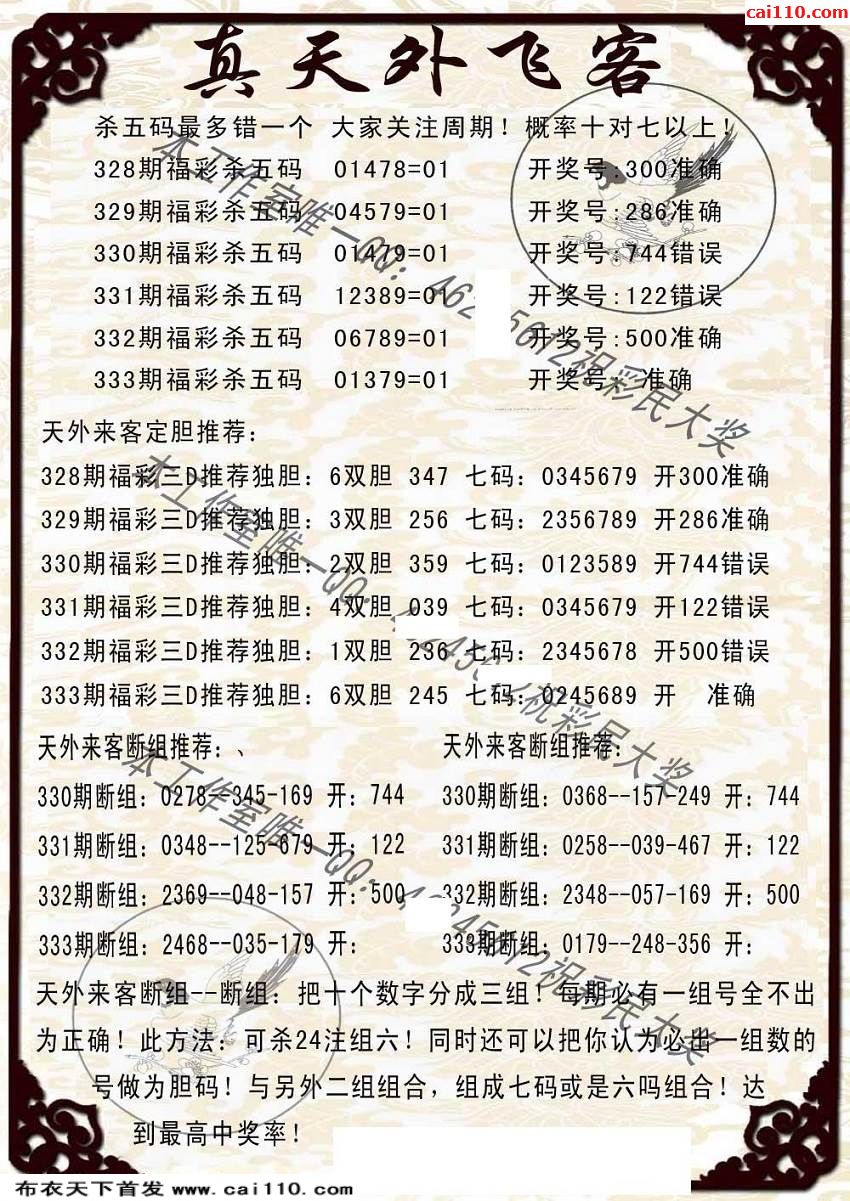 cai110.com
真天外飞客
杀五码最多错一个 大家关注周期！概率十对七以上！
328期福彩杀五码 01478=01 开奖号:300准确
329期福彩杀五码 04579=01 开奖号:286准确
330期福彩杀五码 01479=01 开奖号:744错误
331期福彩杀五码 12389=01 开奖号:122错误
332期福彩杀五码 06789=01 开奖号:500准确
333期福彩杀五码 01379=01 开奖号: 准确
天外来客定胆推荐：
328期福彩三D推荐独胆：6双胆 347 七码：0345679 开300准确
329期福彩三D推荐独胆：3双胆 256 七码：2356789 开286准确
330期福彩三D推荐独胆：2双胆 359 七码：0123589 开744错误
331期福彩三D推荐独胆：4双胆 039 七码：0345679 开122错误
332期福彩三D推荐独胆：1双胆 236 七码：2345678 开500错误
333期福彩三D推荐独胆：6双胆 245 七码：0245689 开 准确
天外来客断组推荐：、
330期断组：0278--345-169 开：744
331期断组：0348--125-679 开：122
332期断组：2369--048-157 开：500
333期断组：2468--035-179 开：
天外来客断组推荐：
330期断组：0368--157-249 开：744
331期断组：0258--039-467 开：122
332期断组：2348--057-169 开：500
333期断组：0179--248-356 开：
天外来客断组--断组：把十个数字分成三组！每期必有一组号全不出
为正确！此方法：可杀24注组六！同时还可以把你认为必出一组数的
号做为胆码！与另外二组组合，组成七码或是六吗组合！达
到最高中奖率！
布衣天下首发 www.cai110.com